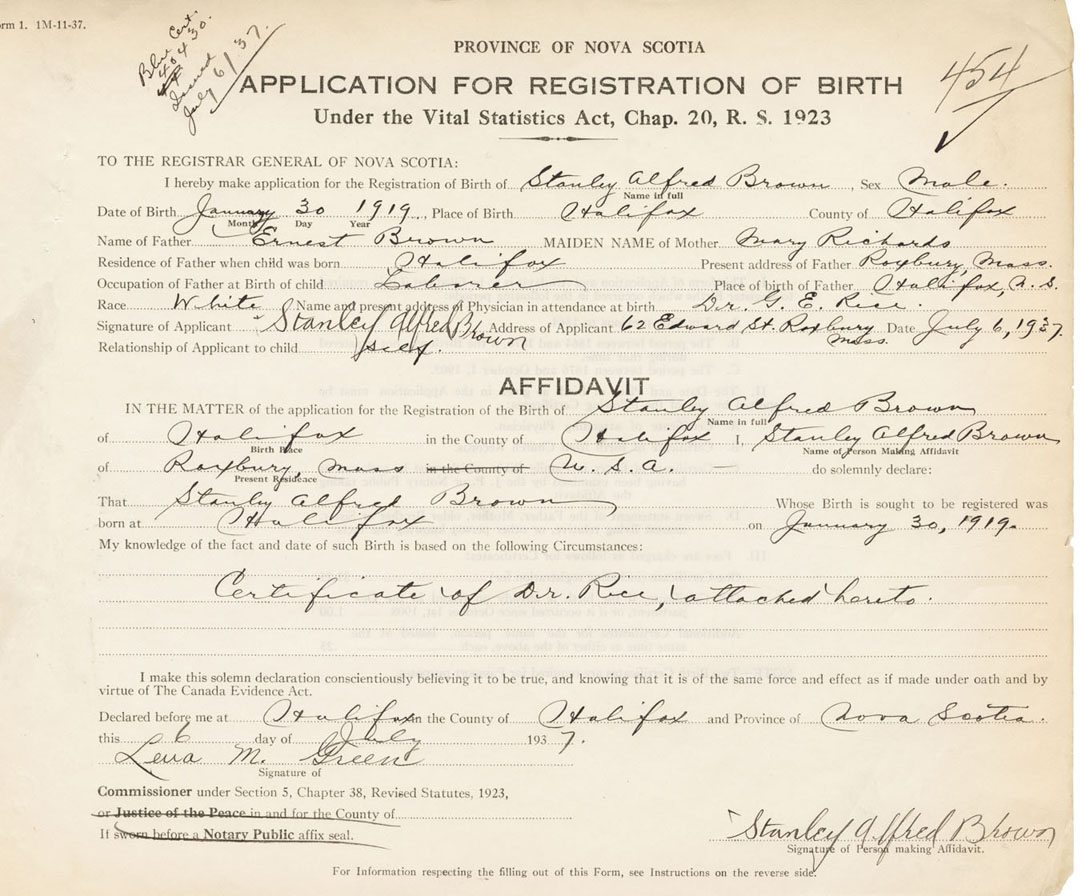 orm 1. 1M-11-37.
Blue Cert.
40430.
Issued
July 6/37.
454
PROVINCE OF NOVA SCOTIA
APPLICATION FOR REGISTRATION OF BIRTH
Under the Vital Statistics Act, Chap. 20, R. S. 1923
TO THE REGISTRAR GENERAL OF NOVA SCOTIA:
I hereby make application for the Registration of Birth of Stanley Alfred Brown, Sex Male.
Name in full
Date of Birth January 30 1919, Place of Birth Halifax County of Halifax
Month Day Year
Name of Father Ernest Brown MAIDEN NAME of Mother Mary Richards
Residence of Father when child was born Halifax Present address of Father Roxbury, Mass.
Occupation of Father at Birth of child Laborer Place of birth of Father Halifax, N. S.
Race White Name and present address of Physician in attendance at birth Dr. G. E. Rice.
Signature of Applicant Stanley Alfred Brown Address of Applicant 62 Edward St. Roxbury Mass. Date July 6, 1937.
Relationship of Applicant to child self.
AFFIDAVIT
IN THE MATTER of the application for the Registration of the Birth of Stanley Alfred Brown
Name in full
of Halifax in the County of Halifax I, Stanley Alfred Brown
Birth Place Name of Person Making Affidavit
of Roxbury, Mass in the County of U. S. A. do solemnly declare:
Present Residence
That Stanley Alfred Brown Whose Birth is sought to be registered was
born at Halifax on January 30, 1919.
My knowledge of the fact and date of such Birth is based on the following Circumstances:
Certificate of Dr. Rice, attached hereto.
I make this solemn declaration conscientiously believing it to be true, and knowing that it is of the same force and effect as if made under oath and by
virtue of The Canada Evidence Act.
Declared before me at Halifax in the County of Halifax and Province of Nova Scotia.
this 6 day of July 1937.
Lena M. Green
Signature of
Commissioner under Section 5, Chapter 38, Revised Statutes, 1923,
or Justice of the Peace in and for the County of
If sworn before a Notary Public affix seal.
Stanley Alfred Brown
Signature of Person making Affidavit.
For Information respecting the filling out of this Form, see Instructions on the reverse side.